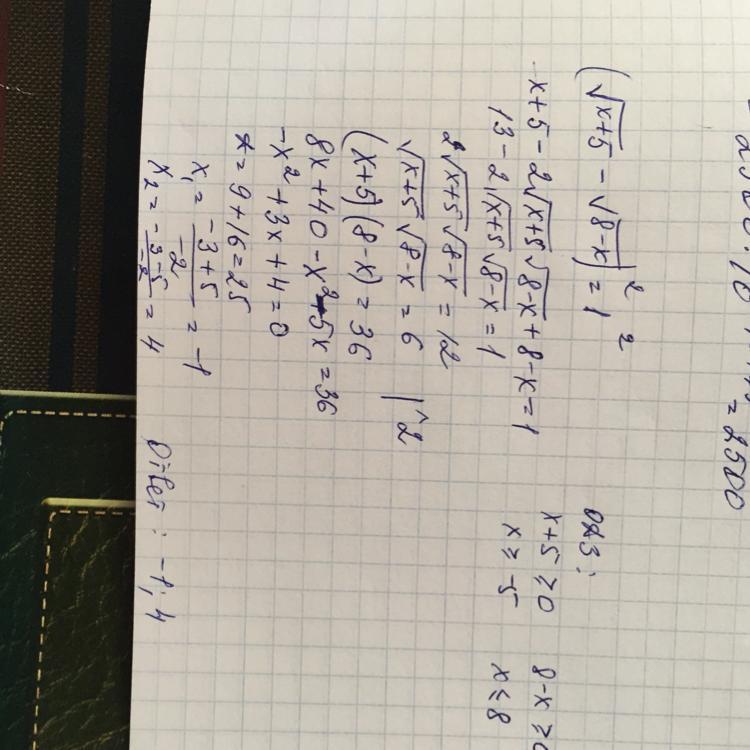 = 2500
(√x+5 - √8-x)² = 1²
x+5 - 2√x+5 √8-x + 8-x = 1
13 - 2√x+5 √8-x = 1
2√x+5 √8-x = 12
√x+5 √8-x = 6 |^2
(x+5)(8-x) = 36
8x+40-x²-5x = 36
-x²+3x+4=0
D = 9+16=25
x₁ = -3+5/-2 = -1
x₂ = -3-5/-2 = 4
Ответ: -1; 4
ОДЗ:
x+5 ≥ 0
x ≥ -5
8-x ≥ 0
x ≤ 8